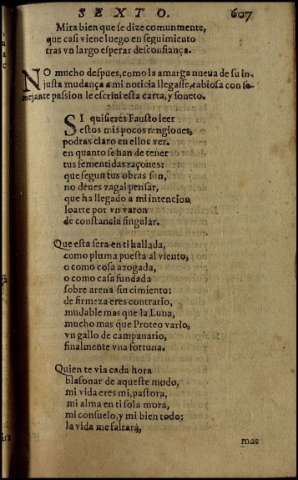 SEXTO. 607
Mira bien que se dize comunmente,
que casi viene luego en seguimiento
tras vn largo esperar desconfiança.
NO mucho despues, como la amarga nueua de su in-
justa mudança a mi noticia llegasse, rabiosa con se-
mejante passion le escriui esta carta, y soneto.
SI quisieres Fausto leer
estos mis pocos renglones,
podras claro en ello c ver.
en quanto se han de tener
tus fementidas razones:
que segun tus obras son,
no deues zagal pensar,
que ha llegado a mi intencion
loarte por vn varon
de constancia singular.
Que esta sera en ti hallada,
como pluma puesta al viento,
o como cosa azogada,
o como casa fundada
sobre arena sin cimiento:
de firmeza eres contrario,
mudable mas que la Luna,
mucho mas que Proteo vario,
vn gallo de campanario,
finalmente vna fortuna.
Quien te via cada hora
blasonar de aqueste modo,
mi vida eres mi, pastora,
mi alma en ti sola mora,
mi consuelo, y mi bien todo:
la vida me faltará,
mas